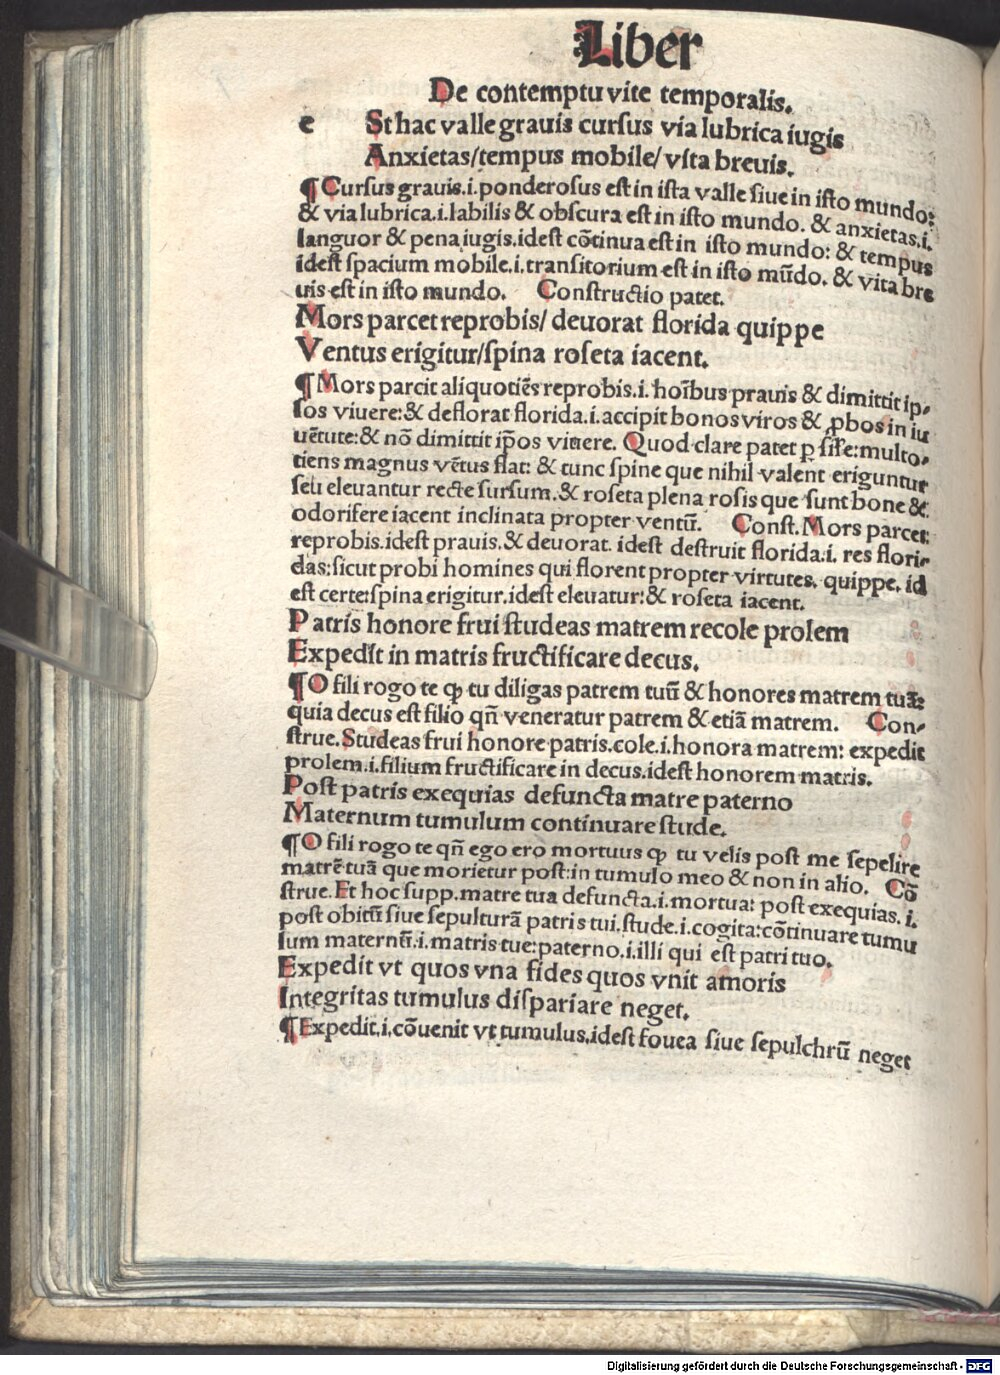 Liber
De contemptu vite temporalis.
e St hac valle grauis cursus via lubrica iugis
Anxietas/tempus mobile/vita breuis.
¶ Cursus grauis.i.ponderosus est in ista valle siue in isto mundo:
& via lubrica.i.labilis & obscura est in isto mundo. & anxietas.i.
languor & pena iugis.idest cōtinua est in isto mundo: & tempus
idest spacium mobile.i.transitorium est in isto mūdo. & vita bre
uis est in isto mundo. Constructio patet.
Mors parcet reprobis/ deuorat florida quippe
Ventus erigitur/spina roseta iacent.
¶ Mors parcit aliquotiēs reprobis.i. hoībus prauis & dimittit ip-
sos viuere:& deflorat florida.i.accipit bonos viros & ꝓbos in iu
uētute:& nō dimittit ip̄os viuere. Quod clare patet ꝑ sil̄e:multo-
tiens magnus vētus flat: & tunc spine que nihil valent eriguntur
seu eleuantur recte sursum.& roseta plena rosis que sunt bone &
odorifere iacent inclinata propter ventū. Const.Mors parcet
reprobis.idest prauis.& deuorat. idest destruit florida.i. res flori-
das:sicut probi homines qui florent propter virtutes. quippe. id
est certe:spina erigitur.idest eleuatur:& roseta iacent.
Patris honore frui studeas matrem recole prolem
Expedit in matris fructificare decus.
¶ O fili rogo te ꝙ tu diligas patrem tuū & honores matrem tuā:
quia decus est filio qn̄ veneratur patrem & etiā matrem. Con-
strue.Studeas frui honore patris.cole.i.honora matrem: expedit
prolem.i.filium fructificare in decus.idest honorem matris.
Post patris exequias defuncta matre paterno
Maternum tumulum continuare stude.
¶ O fili rogo te qn̄ ego ero mortuus ꝙ tu velis post me sepelire
matrē tuā que morietur post:in tumulo meo & non in alio. Cō
strue.Et hoc supp.matre tua defuncta.i.mortua: post exequias. i.
post obitū siue sepulturā patris tui.stude.i.cogita:cōtinuare tumu
lum maternū.i.matris tue:paterno.i.illi qui est patri tuo.
Expedit vt quos vna fides quos vnit amoris
Integritas tumulus dispariare neget.
¶ Expedit.i.cōuenit vt tumulus.idest fouea siue sepulchrū neget
Digitalisierung gefördert durch die Deutsche Forschungsgemeinschaft - DFG